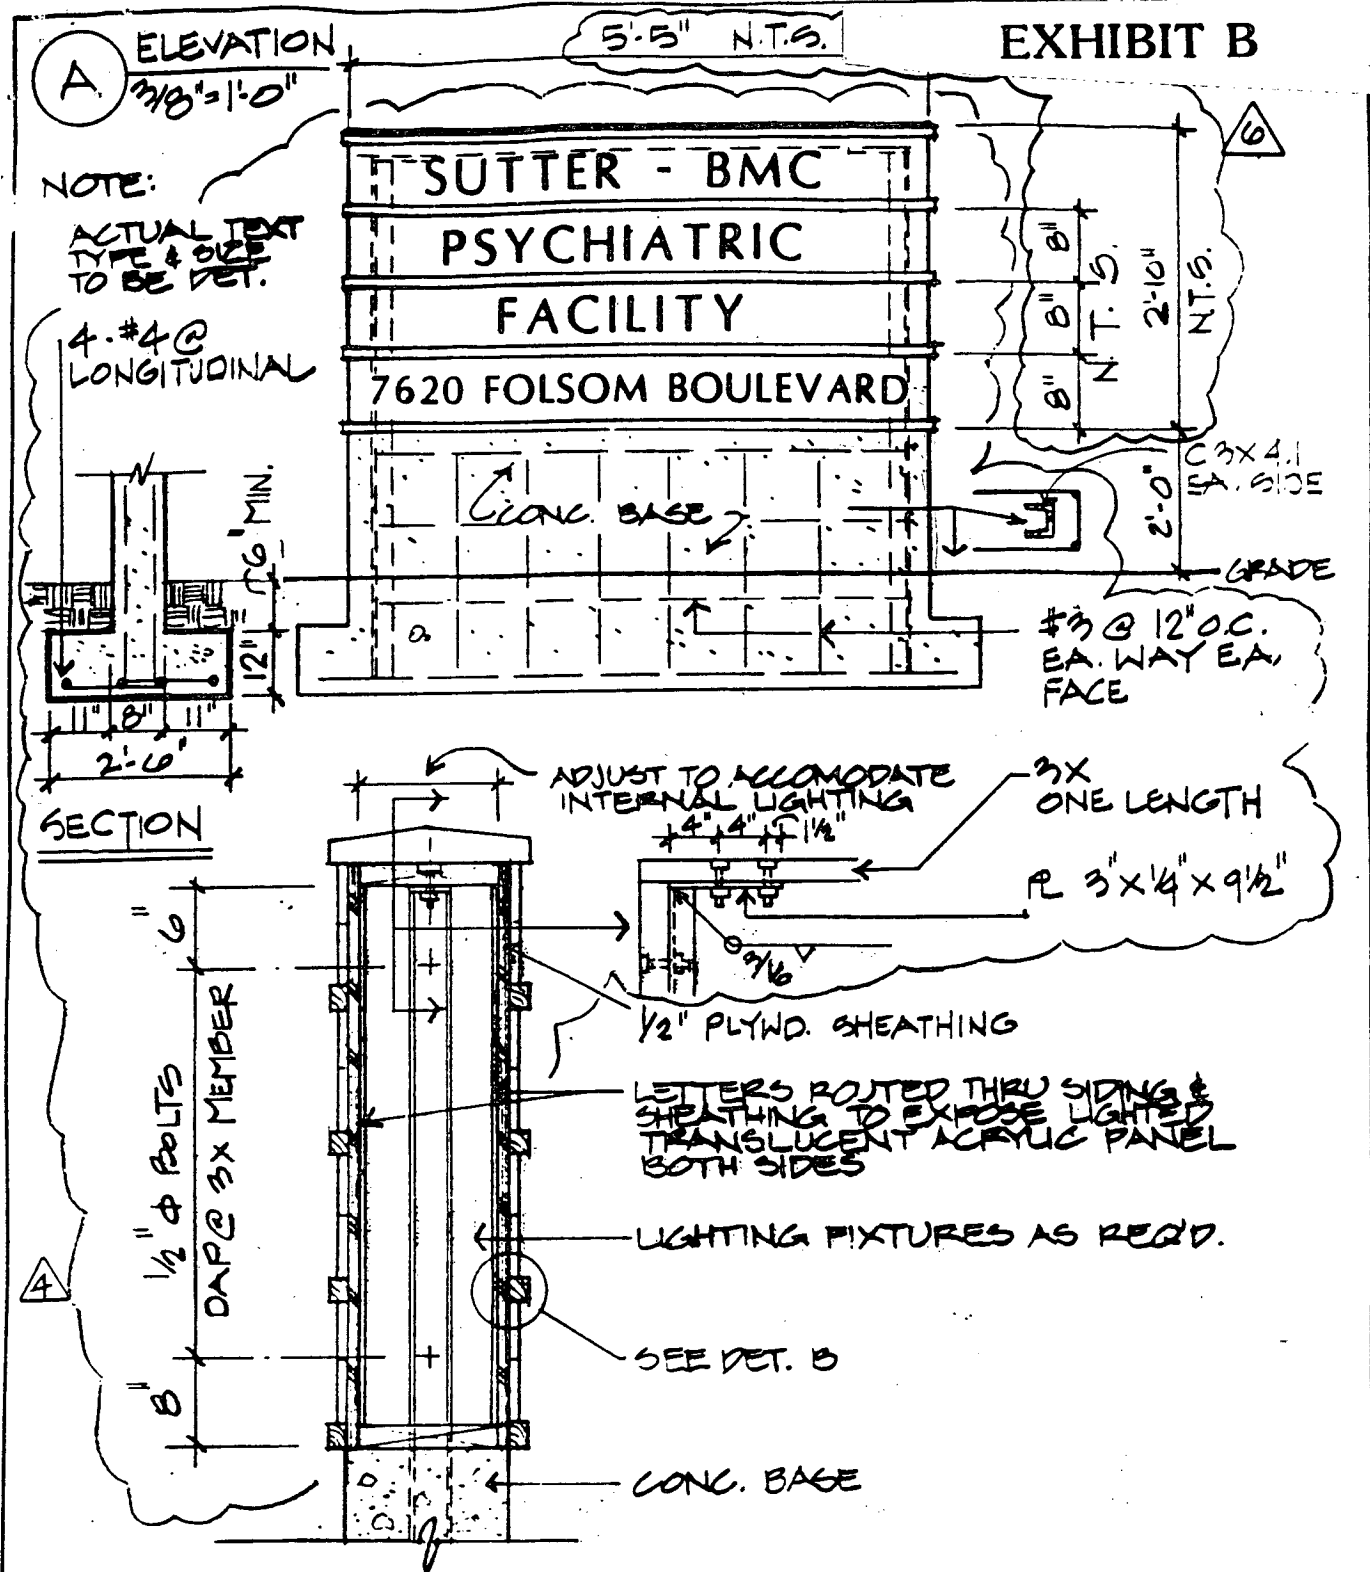 A
ELEVATION
3/8"=1'-0"
5'-5" N.T.S.
EXHIBIT B
6
NOTE:
ACTUAL TEXT
TYPE & SIZE
TO BE DET.
4-#4 @
LONGITUDINAL
SUTTER - BMC
PSYCHIATRIC
FACILITY
7620 FOLSOM BOULEVARD
8"
8"
8"
N.T.S.
2'-10"
N.T.S.
2'-0"
C 3X4.1
EA. SIDE
CONC. BASE
GRADE
6" MIN.
12"
11" 8" 11"
2'-6"
SECTION
#3 @ 12" O.C.
EA. WAY EA.
FACE
ADJUST TO ACCOMODATE
INTERNAL LIGHTING
4" 4" 1½"
3X
ONE LENGTH
PL 3" X ¼" X 9½"
3/16
½" PLYWD. SHEATHING
LETTERS ROUTED THRU SIDING &
SHEATHING TO EXPOSE LIGHTED
TRANSLUCENT ACRYLIC PANEL
BOTH SIDES
LIGHTING FIXTURES AS REQ'D.
SEE DET. B
CONC. BASE
6"
½" Φ BOLTS
DAP @ 3X MEMBER
8"
4